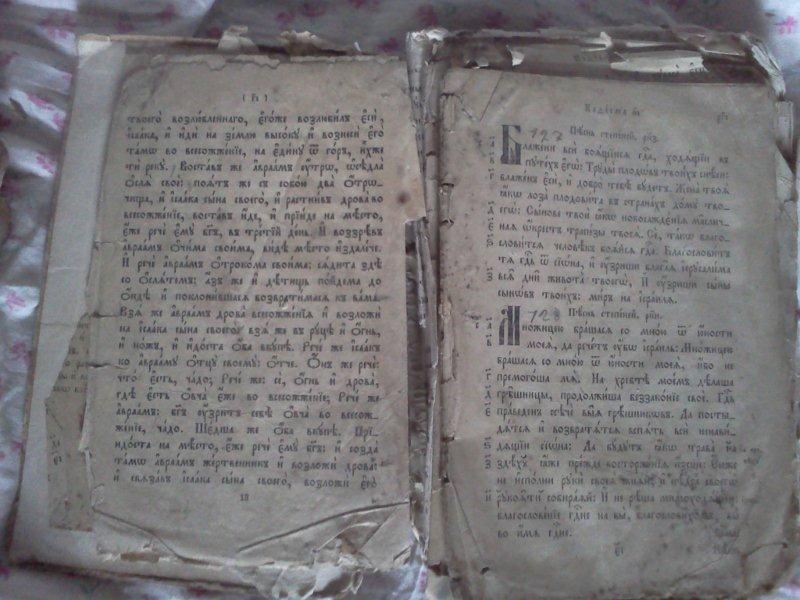 твоего̀ возлю́бленнаго, є҆го́же возлюби́лъ є҆сѝ,
і҆саа́ка, и҆ и҆дѝ на зе́млю высо́кꙋ и҆ вознесѝ є҆го̀
та́мѡ во всесожже́нїе, на є҆ди́нꙋ ѿ го́ръ, и҆́хже
тѝ рекꙋ̀. Воста́въ же а҆враа́мъ ᲂу҆́трѡ, ѡ҆сѣдла̀
ѻ҆слѧ̀ своѐ: поѧ́тъ же съ собо́ю два̀ ѻ҆́трѡ-
чища, и҆ і҆саа́ка сы́на своего̀, и҆ растни́въ дрова̀ во
всесожже́нїе, воста́въ и҆́де, и҆ прїи́де на мѣ́сто,
є҆́же речѐ є҆мꙋ̀ бг҃ъ, въ тре́тїй де́нь. И҆ воззрѣ́въ
а҆враа́мъ ѻ҆чи́ма свои́ма, ви́дѣ мѣ́сто и҆здале́че.
И҆ речѐ а҆враа́мъ ѻ҆трокома̀ свои́ма: сѧди́та здѣ̀
со ѻ҆слѧ́темъ: а҆́зъ же и҆ дѣ́тищь по́йдема до
ѻ҆́ндѣ и҆ поклони́вшасѧ возврати́масѧ къ ва́ма.
Взѧ́ же а҆враа́мъ дрова̀ всесожже́нїѧ и҆ возложѝ
на і҆саа́ка сы́на своего̀: взѧ́ же въ рꙋ́цѣ и҆ ѻ҆́гнь,
и҆ но́жъ, и҆ и҆до́ста ѻ҆́ба вкꙋ́пѣ. Рече́ же і҆саа́къ
ко а҆враа́мꙋ ѻ҆тцꙋ̀ своемꙋ̀: ѻ҆́тче. Ѻ҆́нъ же речѐ:
что̀ є҆́сть, ча́до; Рече́ же: сѐ, ѻ҆́гнь и҆ дрова̀,
гдѣ̀ є҆́сть ѻ҆вча̀ є҆́же во всесожже́нїе; Рече́ же
а҆враа́мъ: бг҃ъ ᲂу҆́зритъ себѣ̀ ѻ҆вча̀ во всесож-
же́нїе, ча́до. Ше́дша же ѻ҆́ба вкꙋ́пѣ. Прїи-
до́ста на мѣ́сто, є҆́же речѐ є҆мꙋ̀ бг҃ъ: и҆ созда̀
та́мѡ а҆враа́мъ же́ртвенникъ и҆ возложѝ дрова̀:
и҆ свѧза́въ і҆саа́ка сы́на своего̀, возложѝ є҆го̀
Каѳі́сма
127 Пѣ́снь степе́ней, рк҃з.
Блаже́ни всѝ боѧ́щїисѧ гдⷭ҇а, ходѧ́щїи въ
пꙋте́хъ є҆гѡ̀: Трꙋды̀ плодѡ́въ твои́хъ снѣ́си:
блаже́нъ є҆сѝ, и҆ добро̀ тебѣ̀ бꙋ́детъ. Жена̀ твоѧ̀
ꙗ҆́кѡ лоза̀ плодови́та въ страна́хъ до́мꙋ тво-
егѡ̀: Сы́нове твоѝ ꙗ҆́кѡ новосаждє́нїѧ ма́слич-
наѧ ѡ҆́крестъ трапе́зы твоеѧ̀. Сѐ, та́кѡ благо-
слови́тсѧ человѣ́къ боѧ́йсѧ гдⷭ҇а. Благослови́тъ
тѧ̀ гдⷭ҇ь ѿ сїѡ́на, и҆ ᲂу҆́зриши блага̑ѧ і҆ерⷭ҇али́ма
всѧ̑ дни̑ живота̀ твоегѡ̀, И҆ ᲂу҆́зриши сы́ны
сынѡ́въ твои́хъ: ми́ръ на і҆сра́илѧ.
128 Пѣ́снь степе́ней, рк҃и.
Мно́жицею бра́шасѧ со мно́ю ѿ ю҆́ности
моеѧ̀, да рече́тъ ᲂу҆́бѡ і҆сра́иль: Мно́жицею
бра́шасѧ со мно́ю ѿ ю҆́ности моеѧ̀, и҆́бо не
премого́ша мѧ̀. На хребтѣ̀ мое́мъ дѣ́лаша
грѣ̑шницы, продолжи́ша беззако́нїе своѐ. Гдⷭ҇ь
првⷣенъ ссѣчѐ вы̑ѧ грѣ́шникѡвъ. Да посты-
дѧ́тсѧ и҆ возвратѧ́тсѧ вспѧ́ть всѝ ненави́-
дѧщїи сїѡ́на: Да бꙋ́дꙋтъ ꙗ҆́кѡ трава̀ на
здѣ́хъ, ꙗ҆́же пре́жде восторже́нїѧ и҆́зсше: Є҆ѧ́же
не и҆спо́лни рꙋкѝ своеѧ̀ жнѧ́й, и҆ нѣ́дра своегѡ̀
и҆ рꙋкоѧ́ти собира́ѧй: И҆ не рѣ́ша мимоходѧ́щїи:
благослове́нїе гдⷭ҇не на вы̀, благослови́хомъ вы̀
во и҆́мѧ гдⷭ҇не.